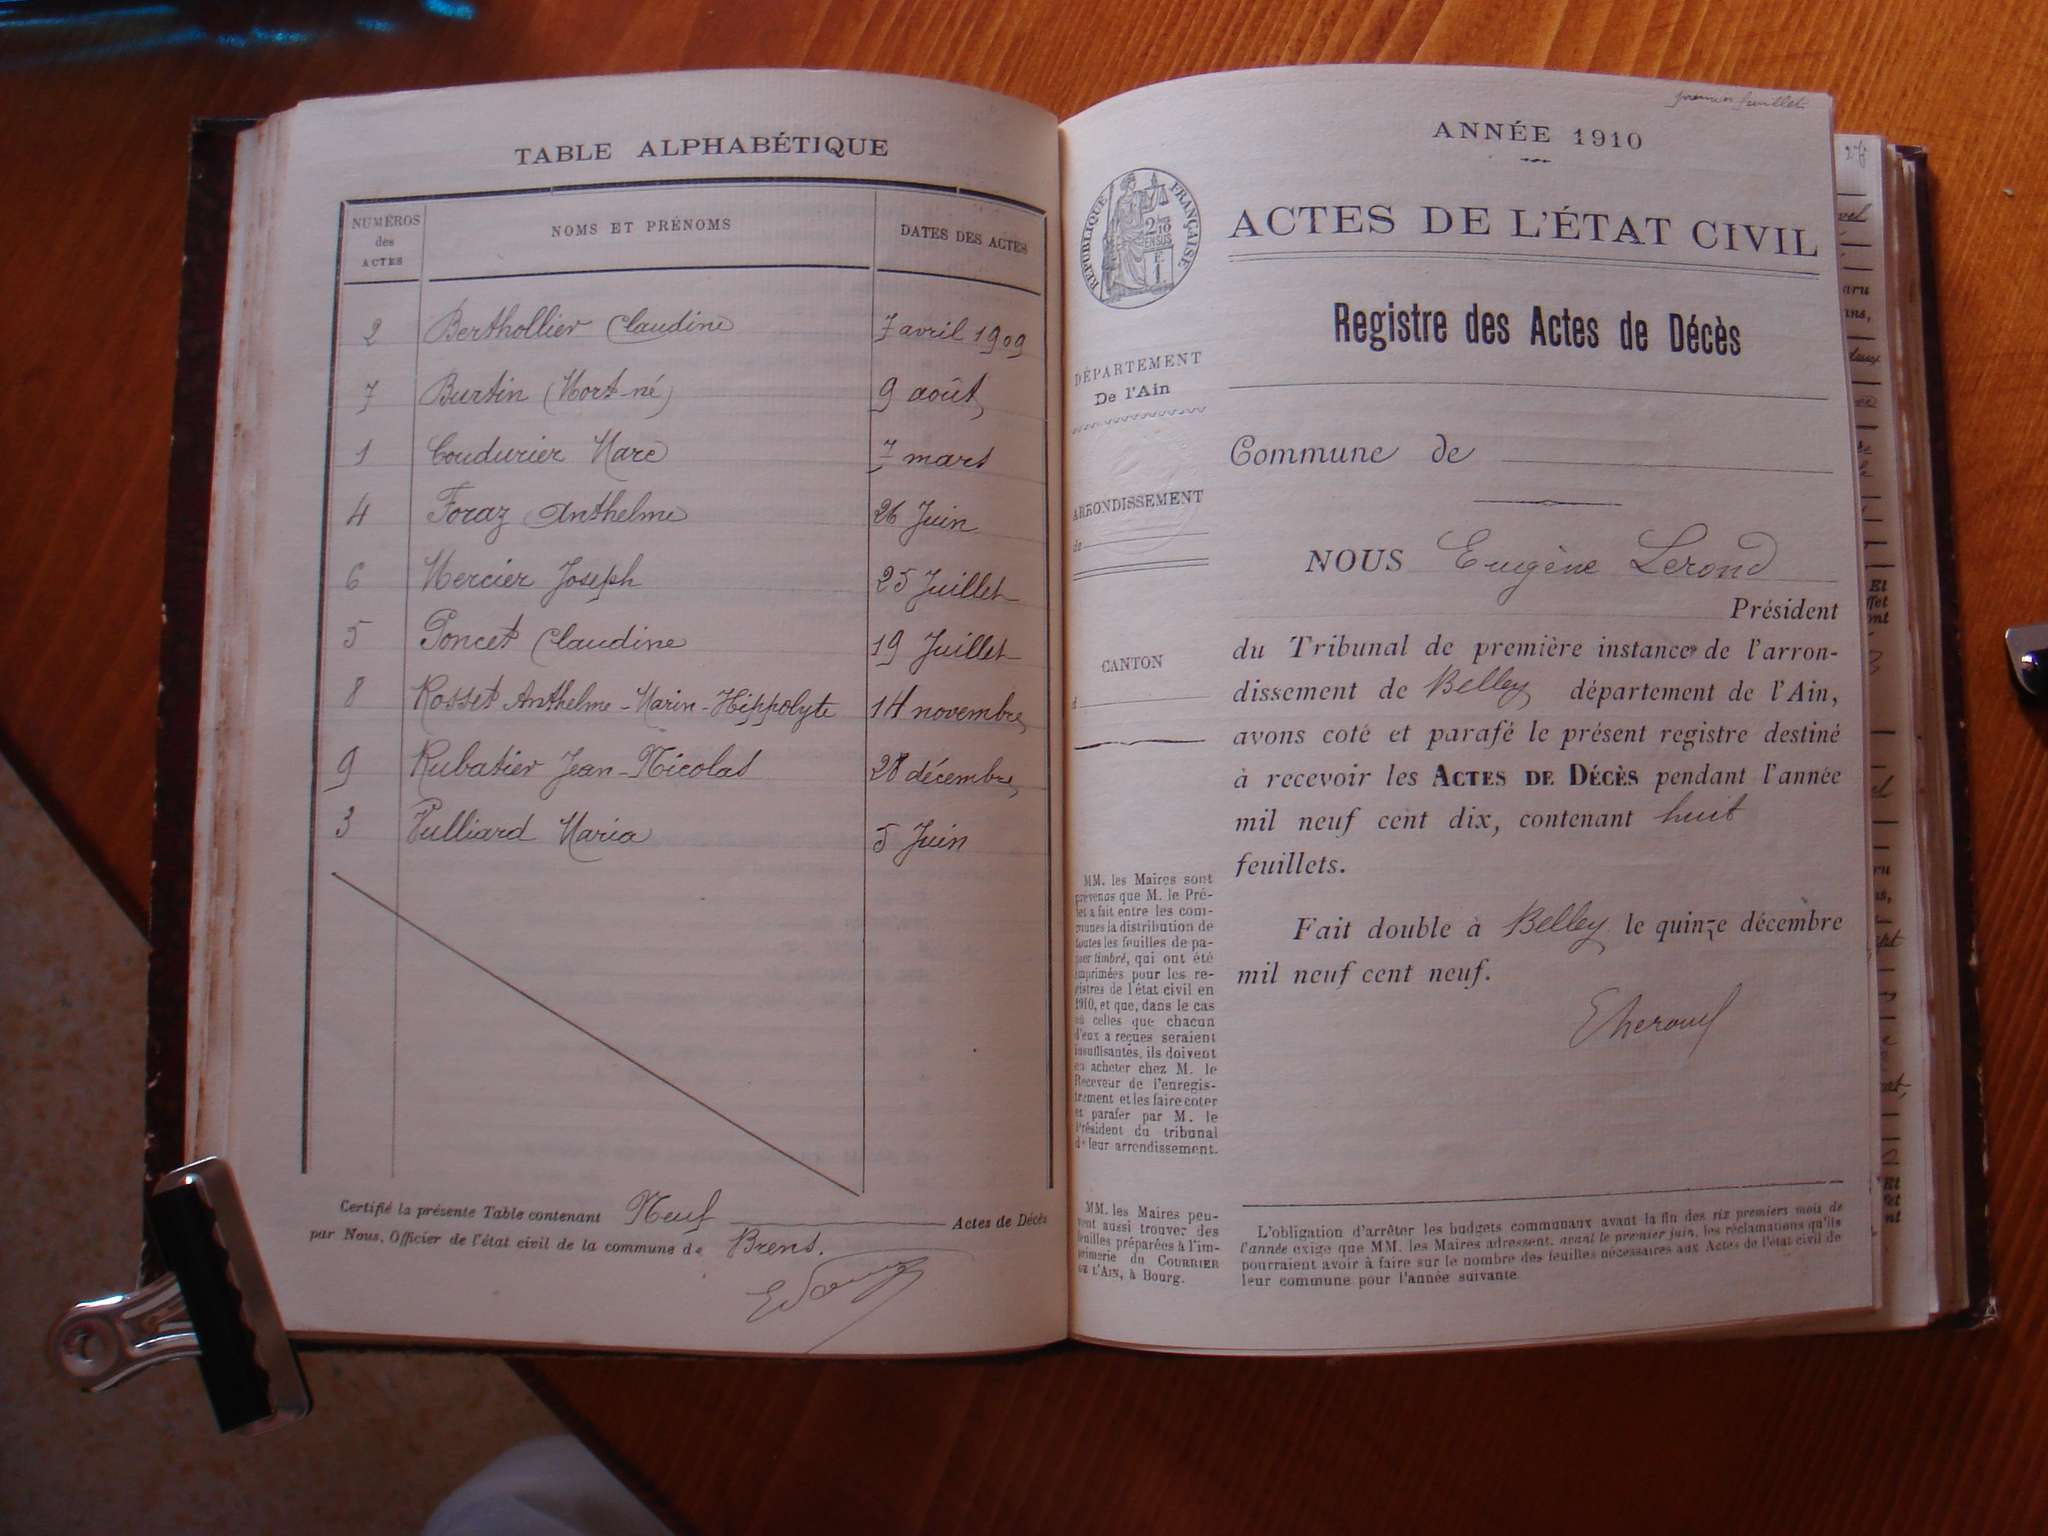 TABLE ALPHABÉTIQUE
NUMÉROS des ACTES NOMS ET PRÉNOMS DATES DES ACTES
2 Berthollier Claudine 7 avril 1909
7 Burtin (Mort-né) 9 août
1 Coudurier Marc 7 mars
4 Foraz Anthelme 26 Juin
6 Mercier Joseph 25 Juillet
5 Poncet Claudine 19 Juillet
8 Rosset Anthelme-Marin-Hippolyte 14 novembre
9 Rubatier Jean-Nicolas 28 décembre
3 Vulliard Maria 5 Juin
Certifié la présente Table contenant Neuf Actes de Décès
par Nous, Officier de l'état civil de la commune de Brens.
premier feuillet
ANNÉE 1910
RÉPUBLIQUE FRANÇAISE
ACTES DE L'ÉTAT CIVIL
Registre des Actes de Décès
DÉPARTEMENT
De l'Ain
Commune de
ARRONDISSEMENT
de
NOUS Eugène Lerond
Président
du Tribunal de première instance de l'arron-
dissement de Belley département de l'Ain,
avons coté et parafé le présent registre destiné
à recevoir les ACTES DE DÉCÈS pendant l'année
mil neuf cent dix, contenant huit
feuillets.
Fait double à Belley le quinze décembre
mil neuf cent neuf.
CANTON
d
MM. les Maires sont
prévenus que M. le Pré-
fet a fait entre les com-
munes la distribution de
toutes les feuilles de pa-
pier timbré, qui ont été
imprimées pour les re-
gistres de l'état civil en
1910, et que, dans le cas
où celles que chacun
d'eux a reçues seraient
insuffisantes, ils doivent
en acheter chez M. le
Receveur de l'enregis-
trement et les faire coter
et parafer par M. le
Président du tribunal
de leur arrondissement.
MM. les Maires peu-
vent aussi trouver des
feuilles préparées à l'im-
primerie du COURRIER
DE L'AIN, à Bourg.
L'obligation d'arrêter les budgets communaux avant la fin des six premiers mois de
l'année exige que MM. les Maires adressent, avant le premier juin, les réclamations qu'ils
pourraient avoir à faire sur le nombre des feuilles nécessaires aux Actes de l'état civil de
leur commune pour l'année suivante